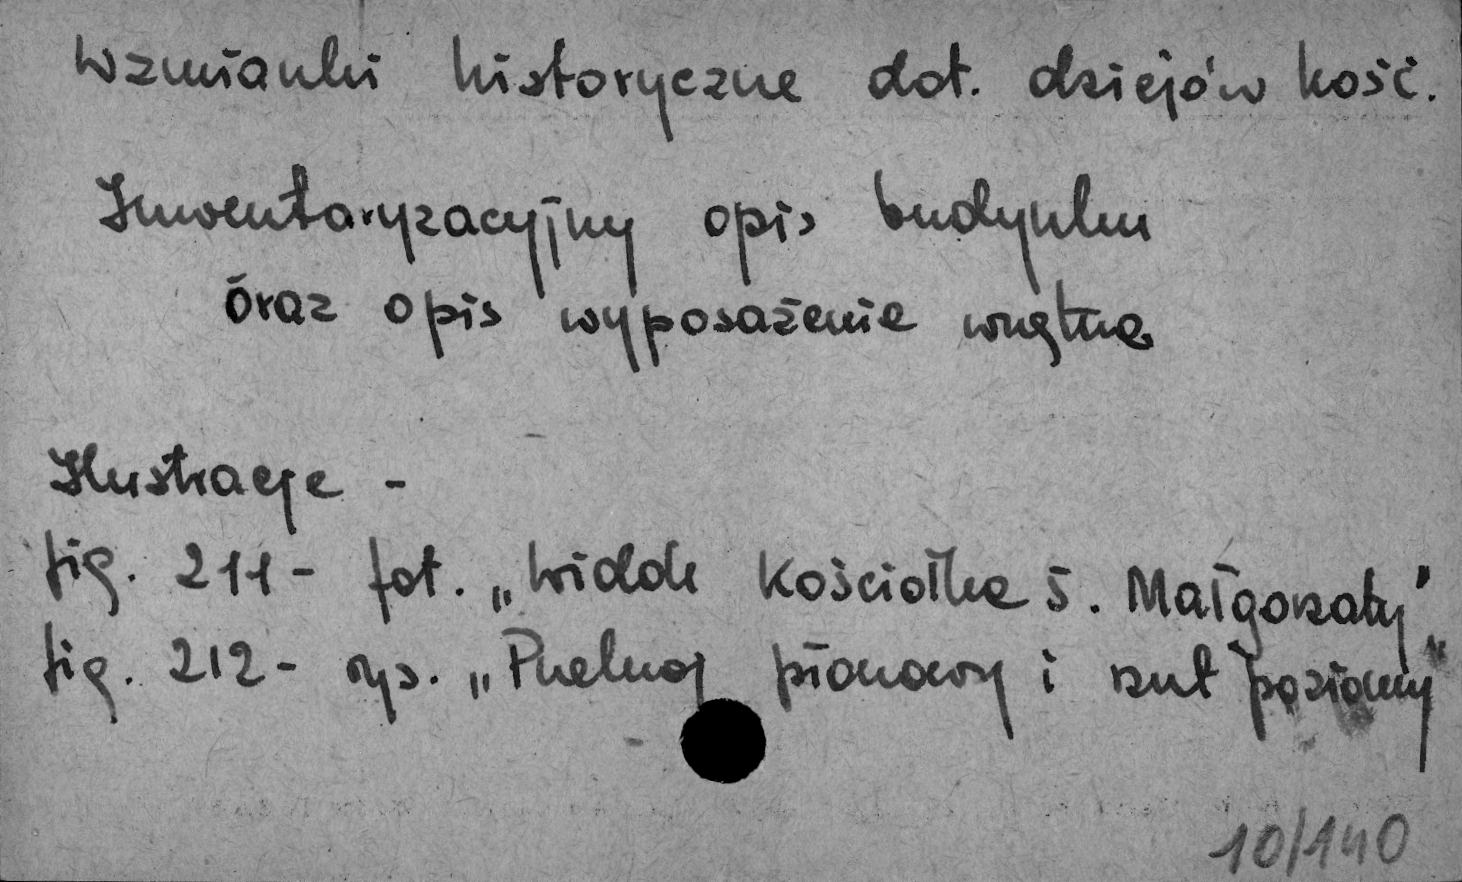 Wzmianki historyczne dot. dziejów kość.
Inwentaryzacyjny opis budynku
oraz opis wyposażenie wnętrza
Ilustracje -
fig. 211 - fot. „Widok Kościołka ś. Małgorzaty"
fig. 212 - rys. „Przekrój pionowy i rzut poziomy"
10/140